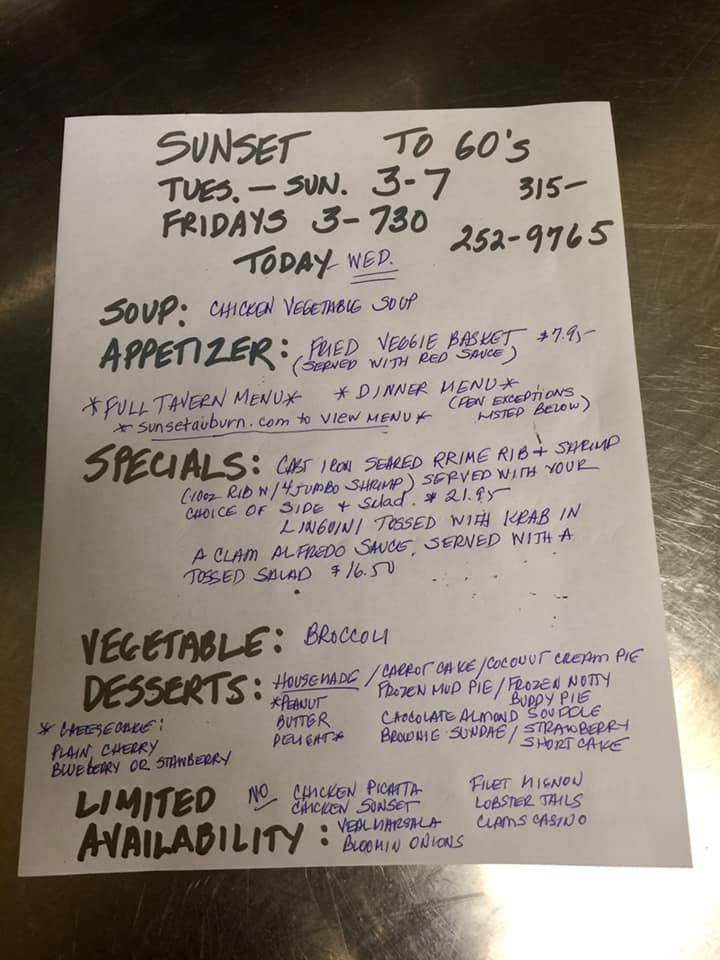 SUNSET TO 60's
TUES. - SUN. 3-7 315-
FRIDAYS 3-730 252-9765
TODAY WED.
SOUP: CHICKEN VEGETABLE SOUP
APPETIZER: FRIED VEGGIE BASKET $7.95
(SERVED WITH RED SAUCE)
*FULL TAVERN MENU* *DINNER MENU*
(FEW EXCEPTIONS
LISTED BELOW)
* sunsetauburn.com to VIEW MENU *
SPECIALS: CAST IRON SEARED PRIME RIB + SHRIMP
(10oz RIB W/4 JUMBO SHRIMP) SERVED WITH YOUR
CHOICE OF SIDE + Salad. $21.95
LINGUINI TOSSED WITH KRAB IN
A CLAM ALFREDO SAUCE, SERVED WITH A
TOSSED SALAD $16.50
VEGETABLE: BROCCOLI
DESSERTS: HOUSEMADE / CARROT CAKE / COCONUT CREAM PIE
*PEANUT
BUTTER
DELIGHT*
FROZEN MUD PIE / FROZEN NUTTY
BUDDY PIE
CHOCOLATE ALMOND SOUFFLE
BROWNIE SUNDAE / STRAWBERRY
SHORTCAKE
* CHEESECAKE:
PLAIN, CHERRY
BLUEBERRY OR STAWBERRY
LIMITED
AVAILABILITY:
NO CHICKEN PICATTA
CHICKEN SUNSET
VEAL MARSALA
BLOOMIN ONIONS
FILET MIGNON
LOBSTER TAILS
CLAMS CASINO